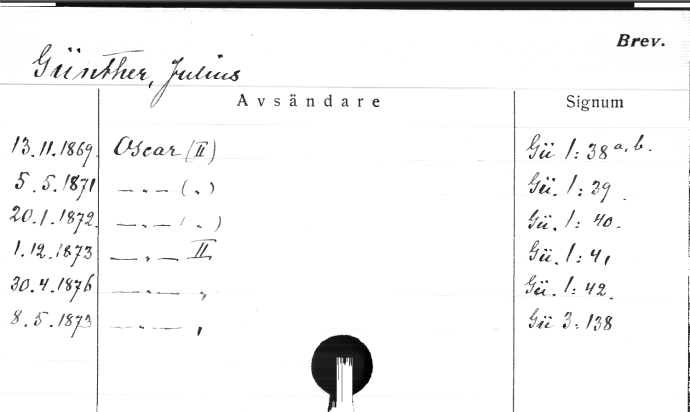 Brev.
Günther, Julius
Avsändare Signum
13.11.1869. Oscar (II) Gü 1:38 a, b.
5.5.1871 — „ — ( „ ) Gü. 1:39.
20.1.1872. — „ — ( „ ) Gü. 1:40.
1.12.1873 — „ — II Gü. 1:41
30.4.1876 — „ — „ Gü. 1:42.
8.5.1873 — „ — „ Gü 3:138